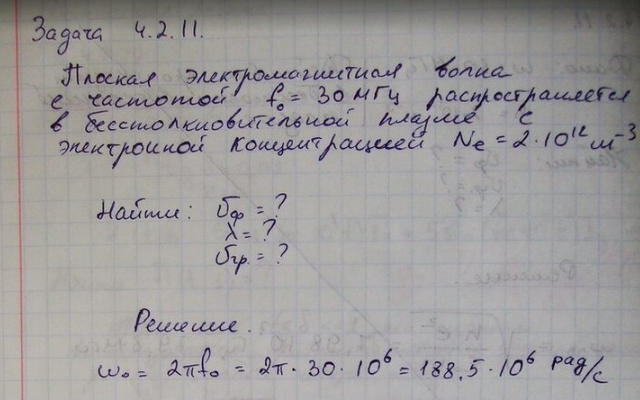 Задача 4.2.11.
Плоская электромагнитная волна
с частотой f₀ = 30 МГц распространяется
в бесстолкновительной плазме с
электронной концентрацией Nе = 2·10¹² м⁻³
Найти: vф = ?
λ = ?
vгр. = ?
Решение.
ω₀ = 2πf₀ = 2π·30·10⁶ = 188,5·10⁶ рад/с